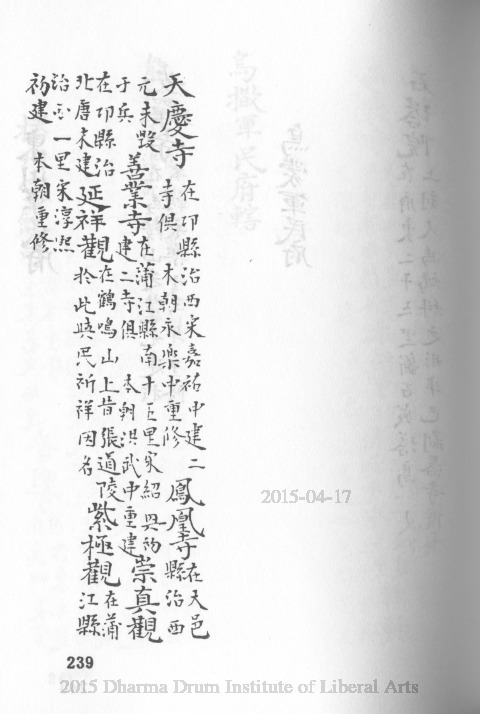 天慶寺
在邛縣治西宋嘉祐中建二
寺俱 本朝永樂中重修
鳳凰寺
在天邑
縣治西
元末毀
于兵
善業寺
在蒲江縣南十五里宋紹興初
建二寺俱 本朝洪武中重建
崇真觀
在邛縣治
北唐末建
延祥觀
在鶴鳴山上昔張道陵
於此與民祈祥因名
紫極觀
在蒲
江縣
治西一里宋淳熙
初建 本朝重修
239
2015-04-17
2015 Dharma Drum Institute of Liberal Arts